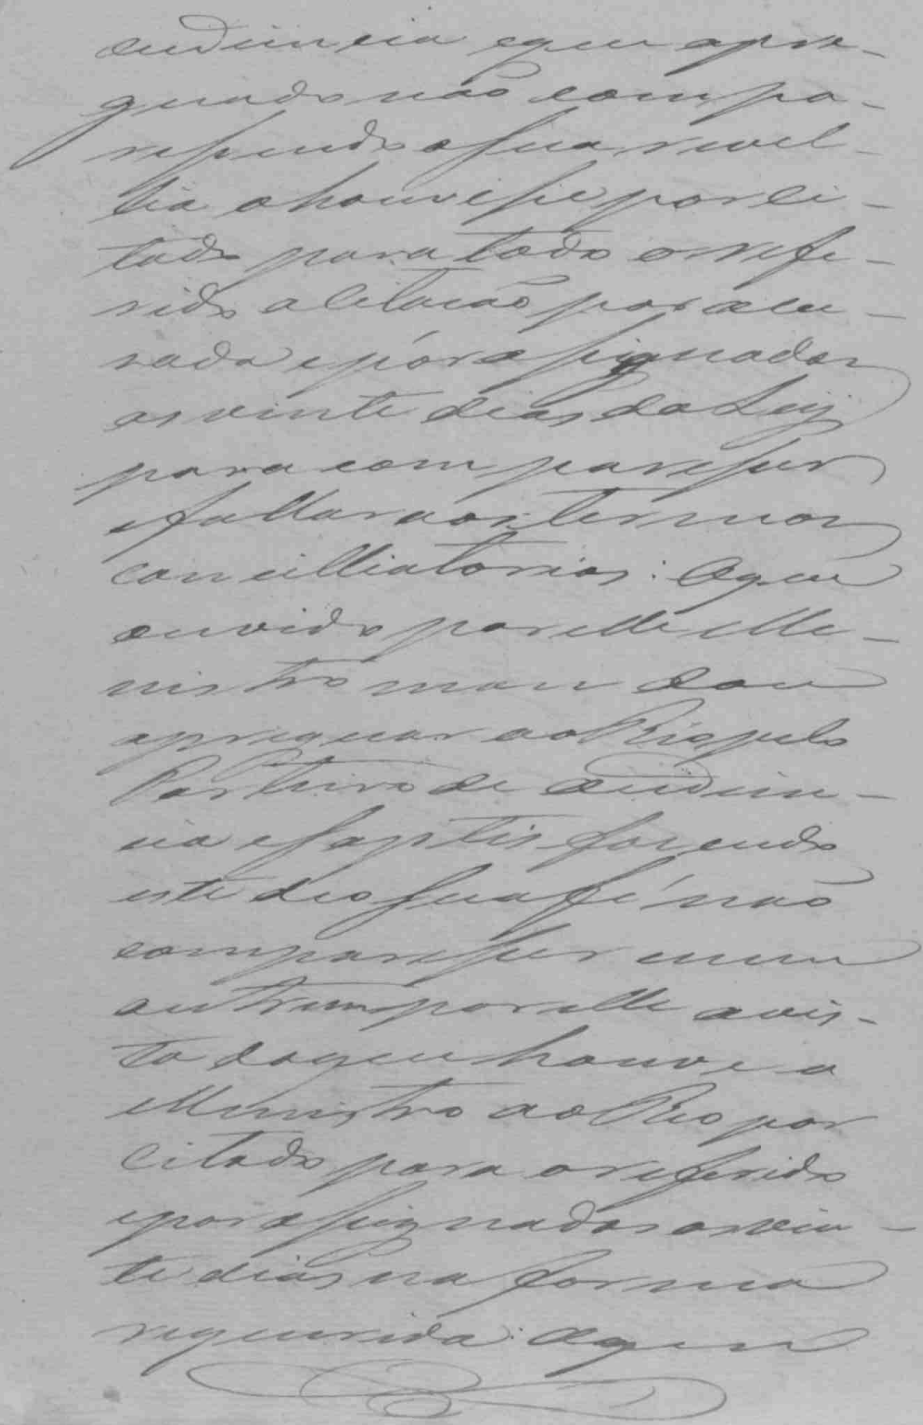 audiencia e que apre-
guado não compa-
ressendo a sua revel-
lia o houvesse por ci-
tado para todo o refe-
rido a citação por acu-
sada e por assignados
os vinte dias da Lei
para comparesser
e fallar aos termos
concilliatorios. O que
ouvido por elle Me-
nistro mandou
apreguar ao Reo pelo
Porteiro de audien-
cia e fazendo
este deo sua fé não
comparesser nem
outrem por elle a vis-
ta do que houve o
Menistro ao Reo por
citado para o referido
e por assignados os vin-
te dias na forma
requerida. O que